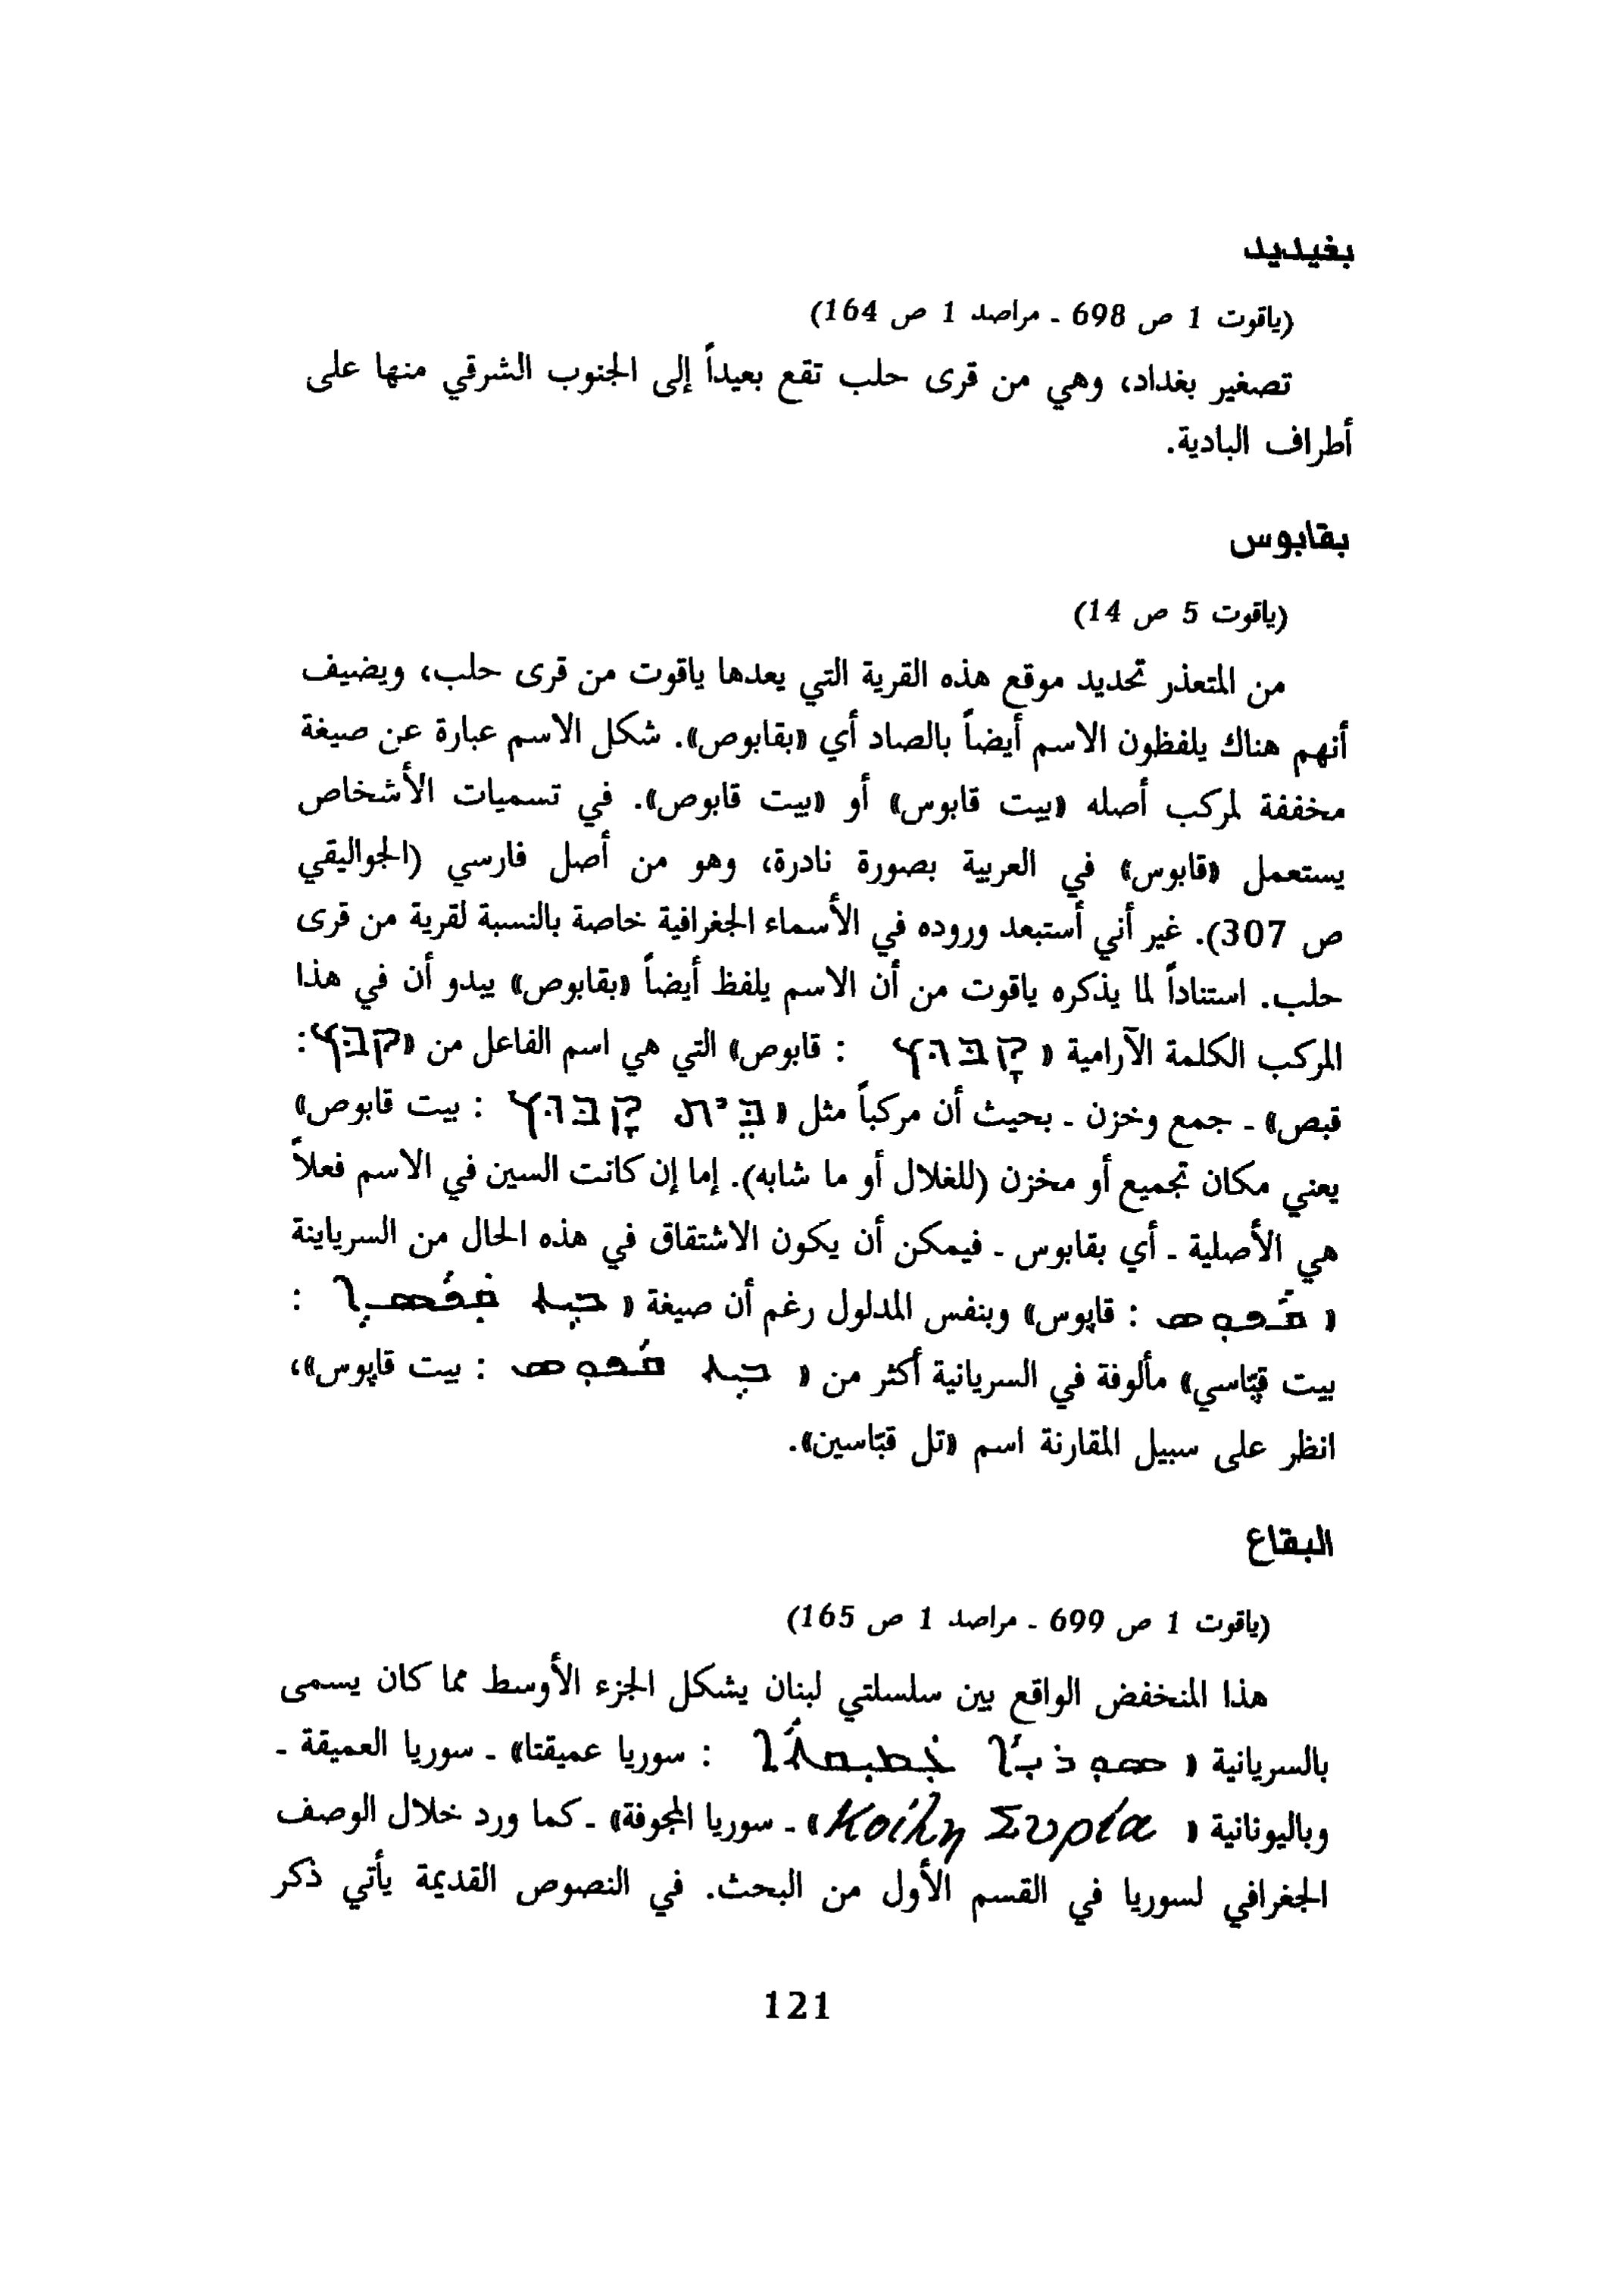 بغيديد
(ياقوت 1 ص 698 ـ مراصد 1 ص 164)
تصغير بغداد، وهي من قرى حلب تقع بعيداً إلى الجنوب الشرقي منها على
أطراف البادية.
بقابوس
(ياقوت 5 ص 14)
من المتعذر تحديد موقع هذه القرية التي يعدها ياقوت من قرى حلب، ويضيف
أنهم هناك يلفظون الاسم أيضاً بالصاد أي «بقابوص». شكل الاسم عبارة عن صيغة
مخففة لمركب أصله «بيت قابوس» أو «بيت قابوص». في تسميات الأشخاص
يستعمل «قابوس» في العربية بصورة نادرة، وهو من أصل فارسي (الجواليقي
ص 307). غير أني أستبعد وروده في الأسماء الجغرافية خاصة بالنسبة لقرية من قرى
حلب. استناداً لما يذكره ياقوت من أن الاسم يلفظ أيضاً «بقابوص» يبدو أن في هذا
المركب الكلمة الآرامية « קָבוּץ : قابوص» التي هي اسم الفاعل من «קבץ :
قبص» ـ جمع وخزن ـ بحيث أن مركباً مثل « בֵּית קָבוּץ : بيت قابوص»
يعني مكان تجميع أو مخزن (للغلال أو ما شابه). إما إن كانت السين في الاسم فعلاً
هي الأصلية ـ أي بقابوس ـ فيمكن أن يكون الاشتقاق في هذه الحال من السرياينة
« ܩܳܦܘܣ : قاپوس» وبنفس المدلول رغم أن صيغة « ܒܝܬ ܩܦܳܣܐ :
بيت قپّاسي» مألوفة في السريانية أكثر من « ܒܝܬ ܩܳܦܘܣ : بيت قاپوس»،
انظر على سبيل المقارنة اسم «تل قبّاسين».
البقاع
(ياقوت 1 ص 699 ـ مراصد 1 ص 165)
هذا المنخفض الواقع بين سلسلتي لبنان يشكل الجزء الأوسط مما كان يسمى
بالسريانية « ܣܘܪܝܐ ܥܡܝܩܬܐ : سوريا عميقتا» ـ سوريا العميقة ـ
وباليونانية « Κοίλη Συρία» ـ سوريا المجوفة» ـ كما ورد خلال الوصف
الجغرافي لسوريا في القسم الأول من البحث. في النصوص القديمة يأتي ذكر
121